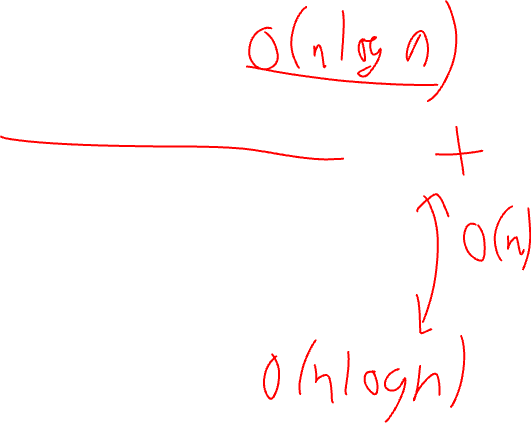 O(n log n)
+
O(n)
O(n log n)